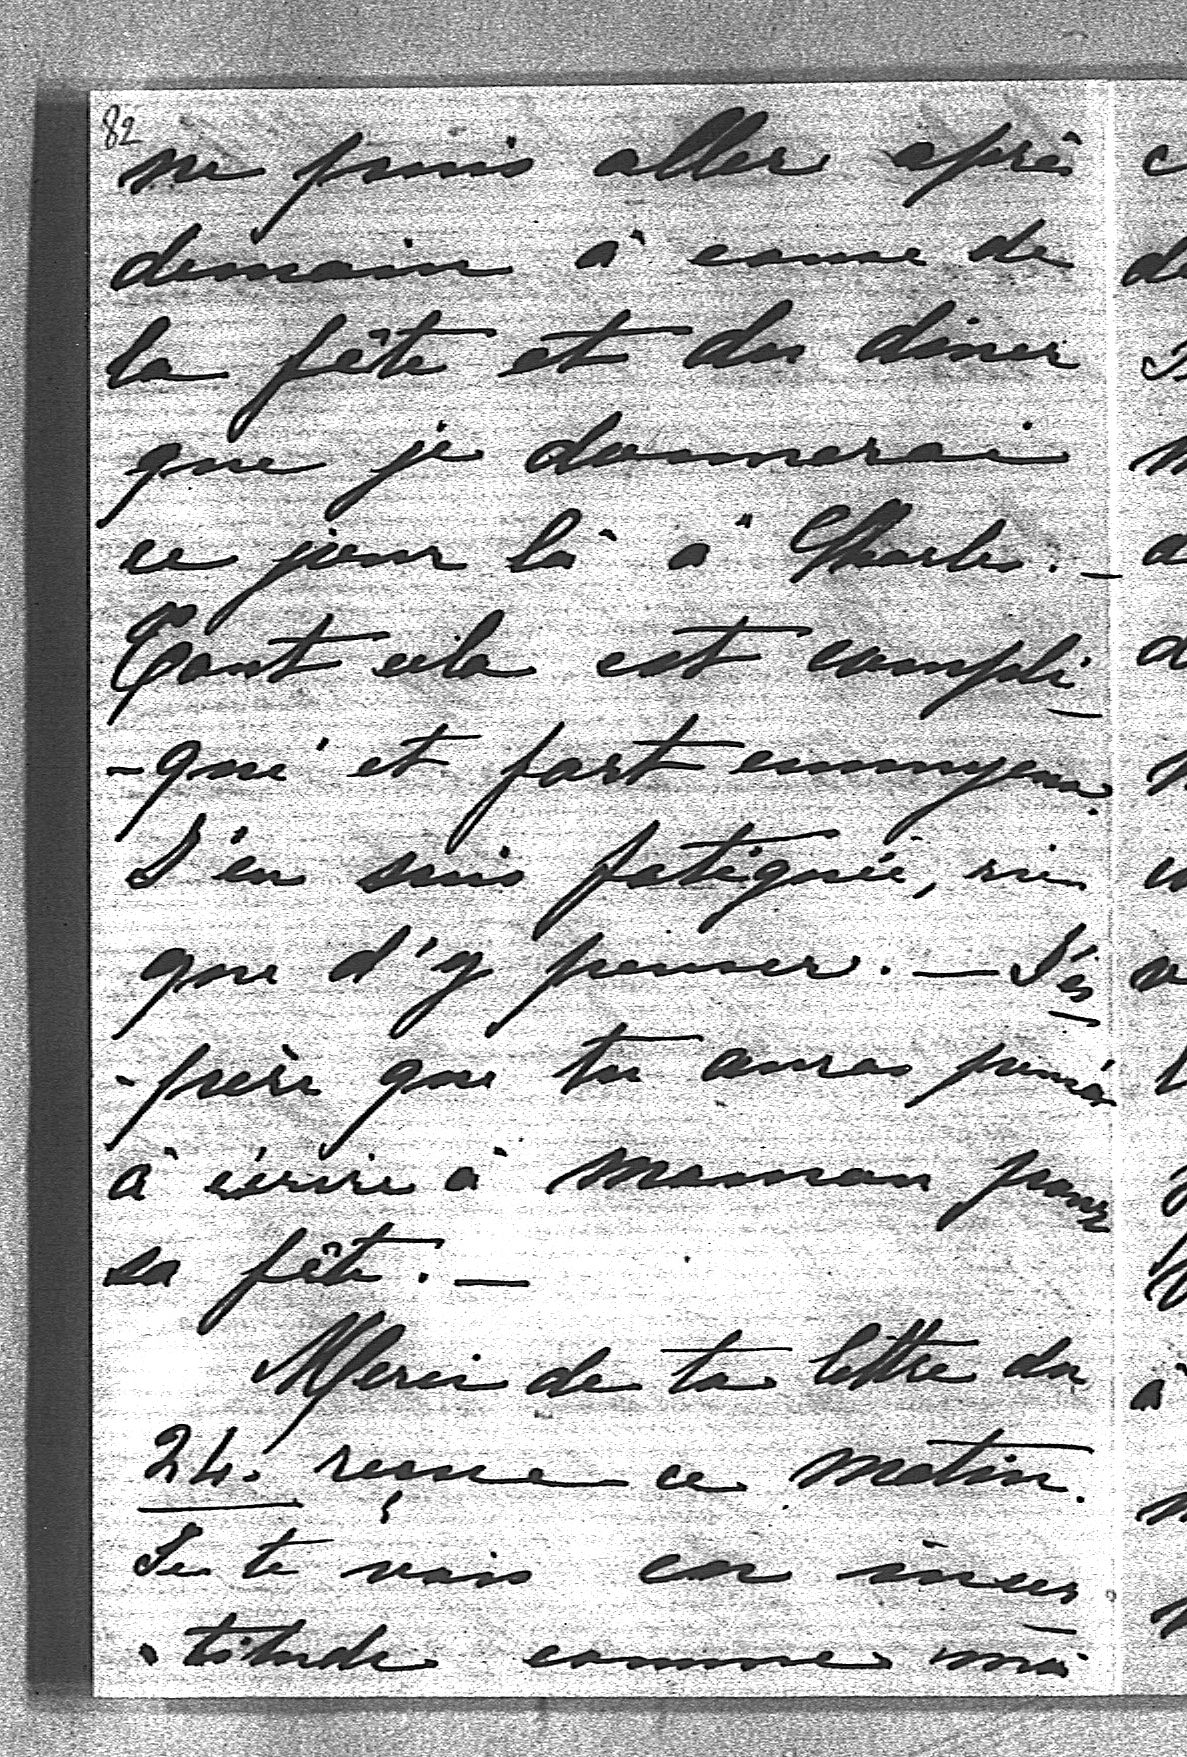 82
ne puis aller après
demain à cause de
la fête et du diner
que je donnerai
ce jour là à Charles. —
Tout cela est compli
-qué et fort ennuyeux.
J'en suis fatiguée, rien
que d'y penser. — J'es
-père que tu auras pensé
à écrire à maman pour
sa fête. —
Merci de ta lettre du
24. reçue ce matin.
Je te vois en incer
-titude comme moi